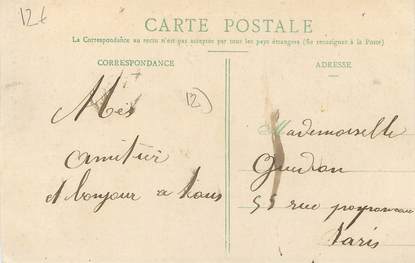 12 €
CARTE POSTALE
La Correspondance au recto n'est pas acceptée par tous les pays étrangers (Se renseigner à la Poste)
CORRESPONDANCE
ADRESSE
12
Mes
amitiés
et bonjour a tous
Mademoiselle
55 rue
Paris